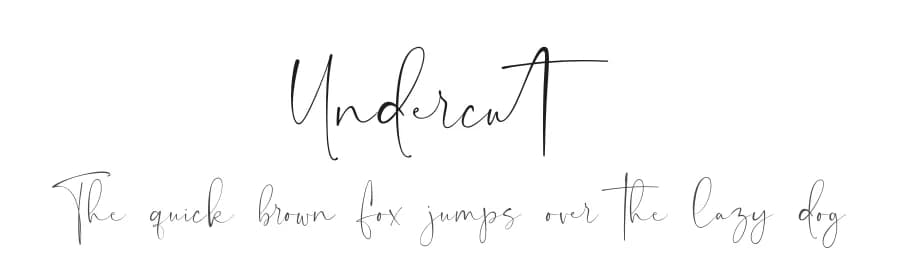 Undercut
The quick brown fox jumps over the lazy dog